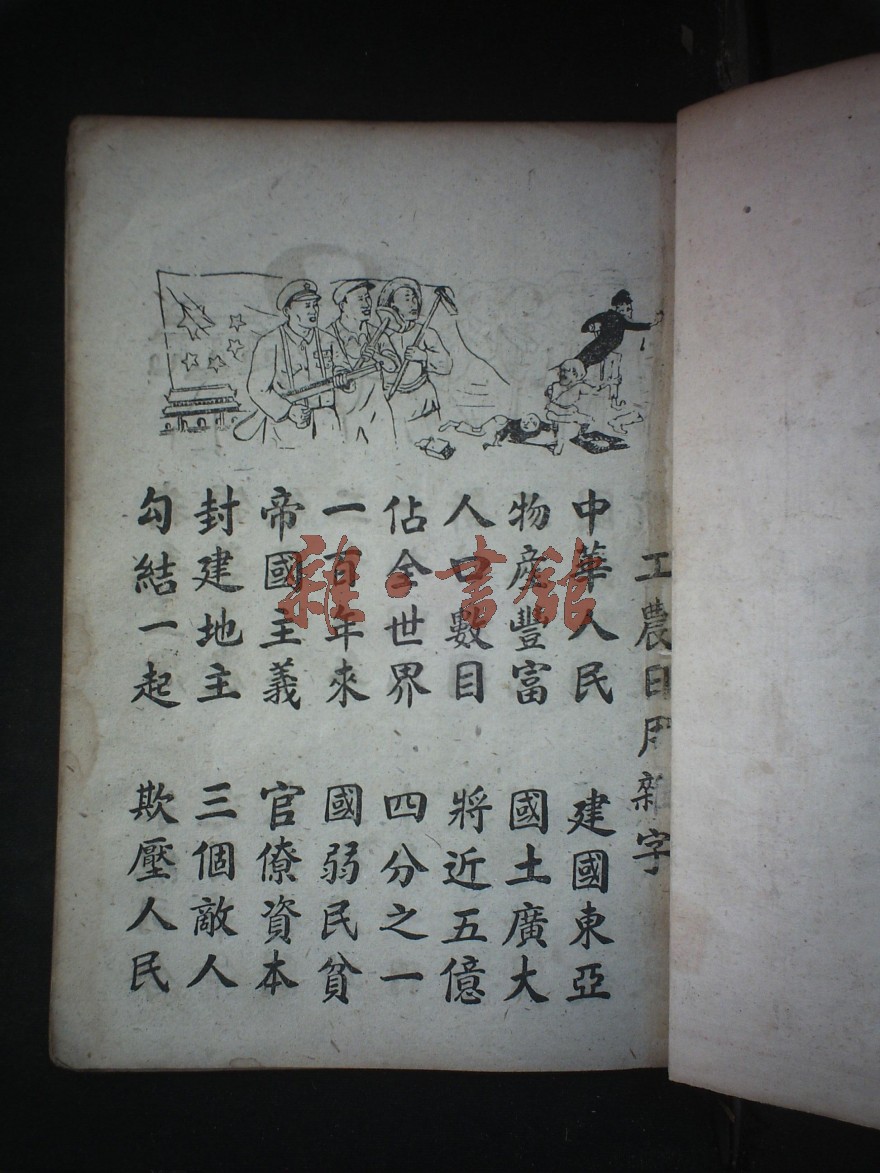 工農日用雜字
中華人民 建國東亞
物産豐富 國土廣大
人口數目 將近五億
佔全世界 四分之一
一百年來 國弱民貧
帝國主義 官僚資本
封建地主 三個敵人
勾結一起 欺壓人民
雜·書館